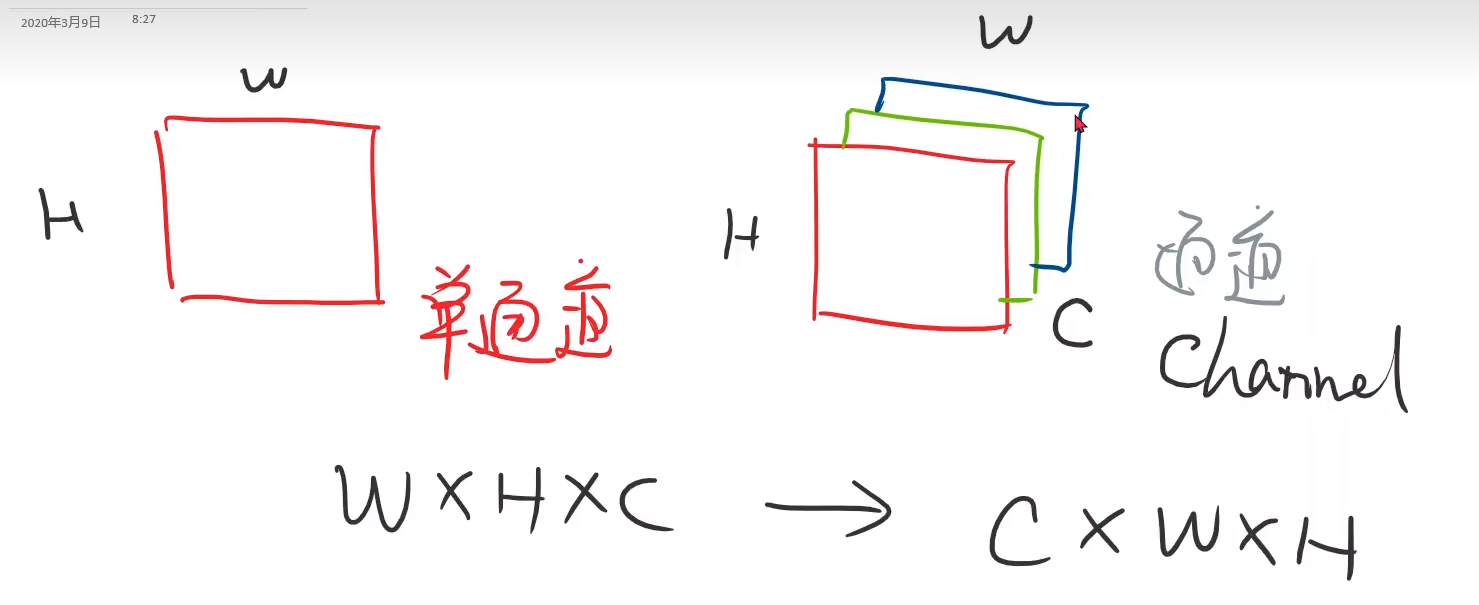 2020年3月9日 8:27
W
H
单通道
W
H
C
通道
Channel
W×H×C → C×W×H